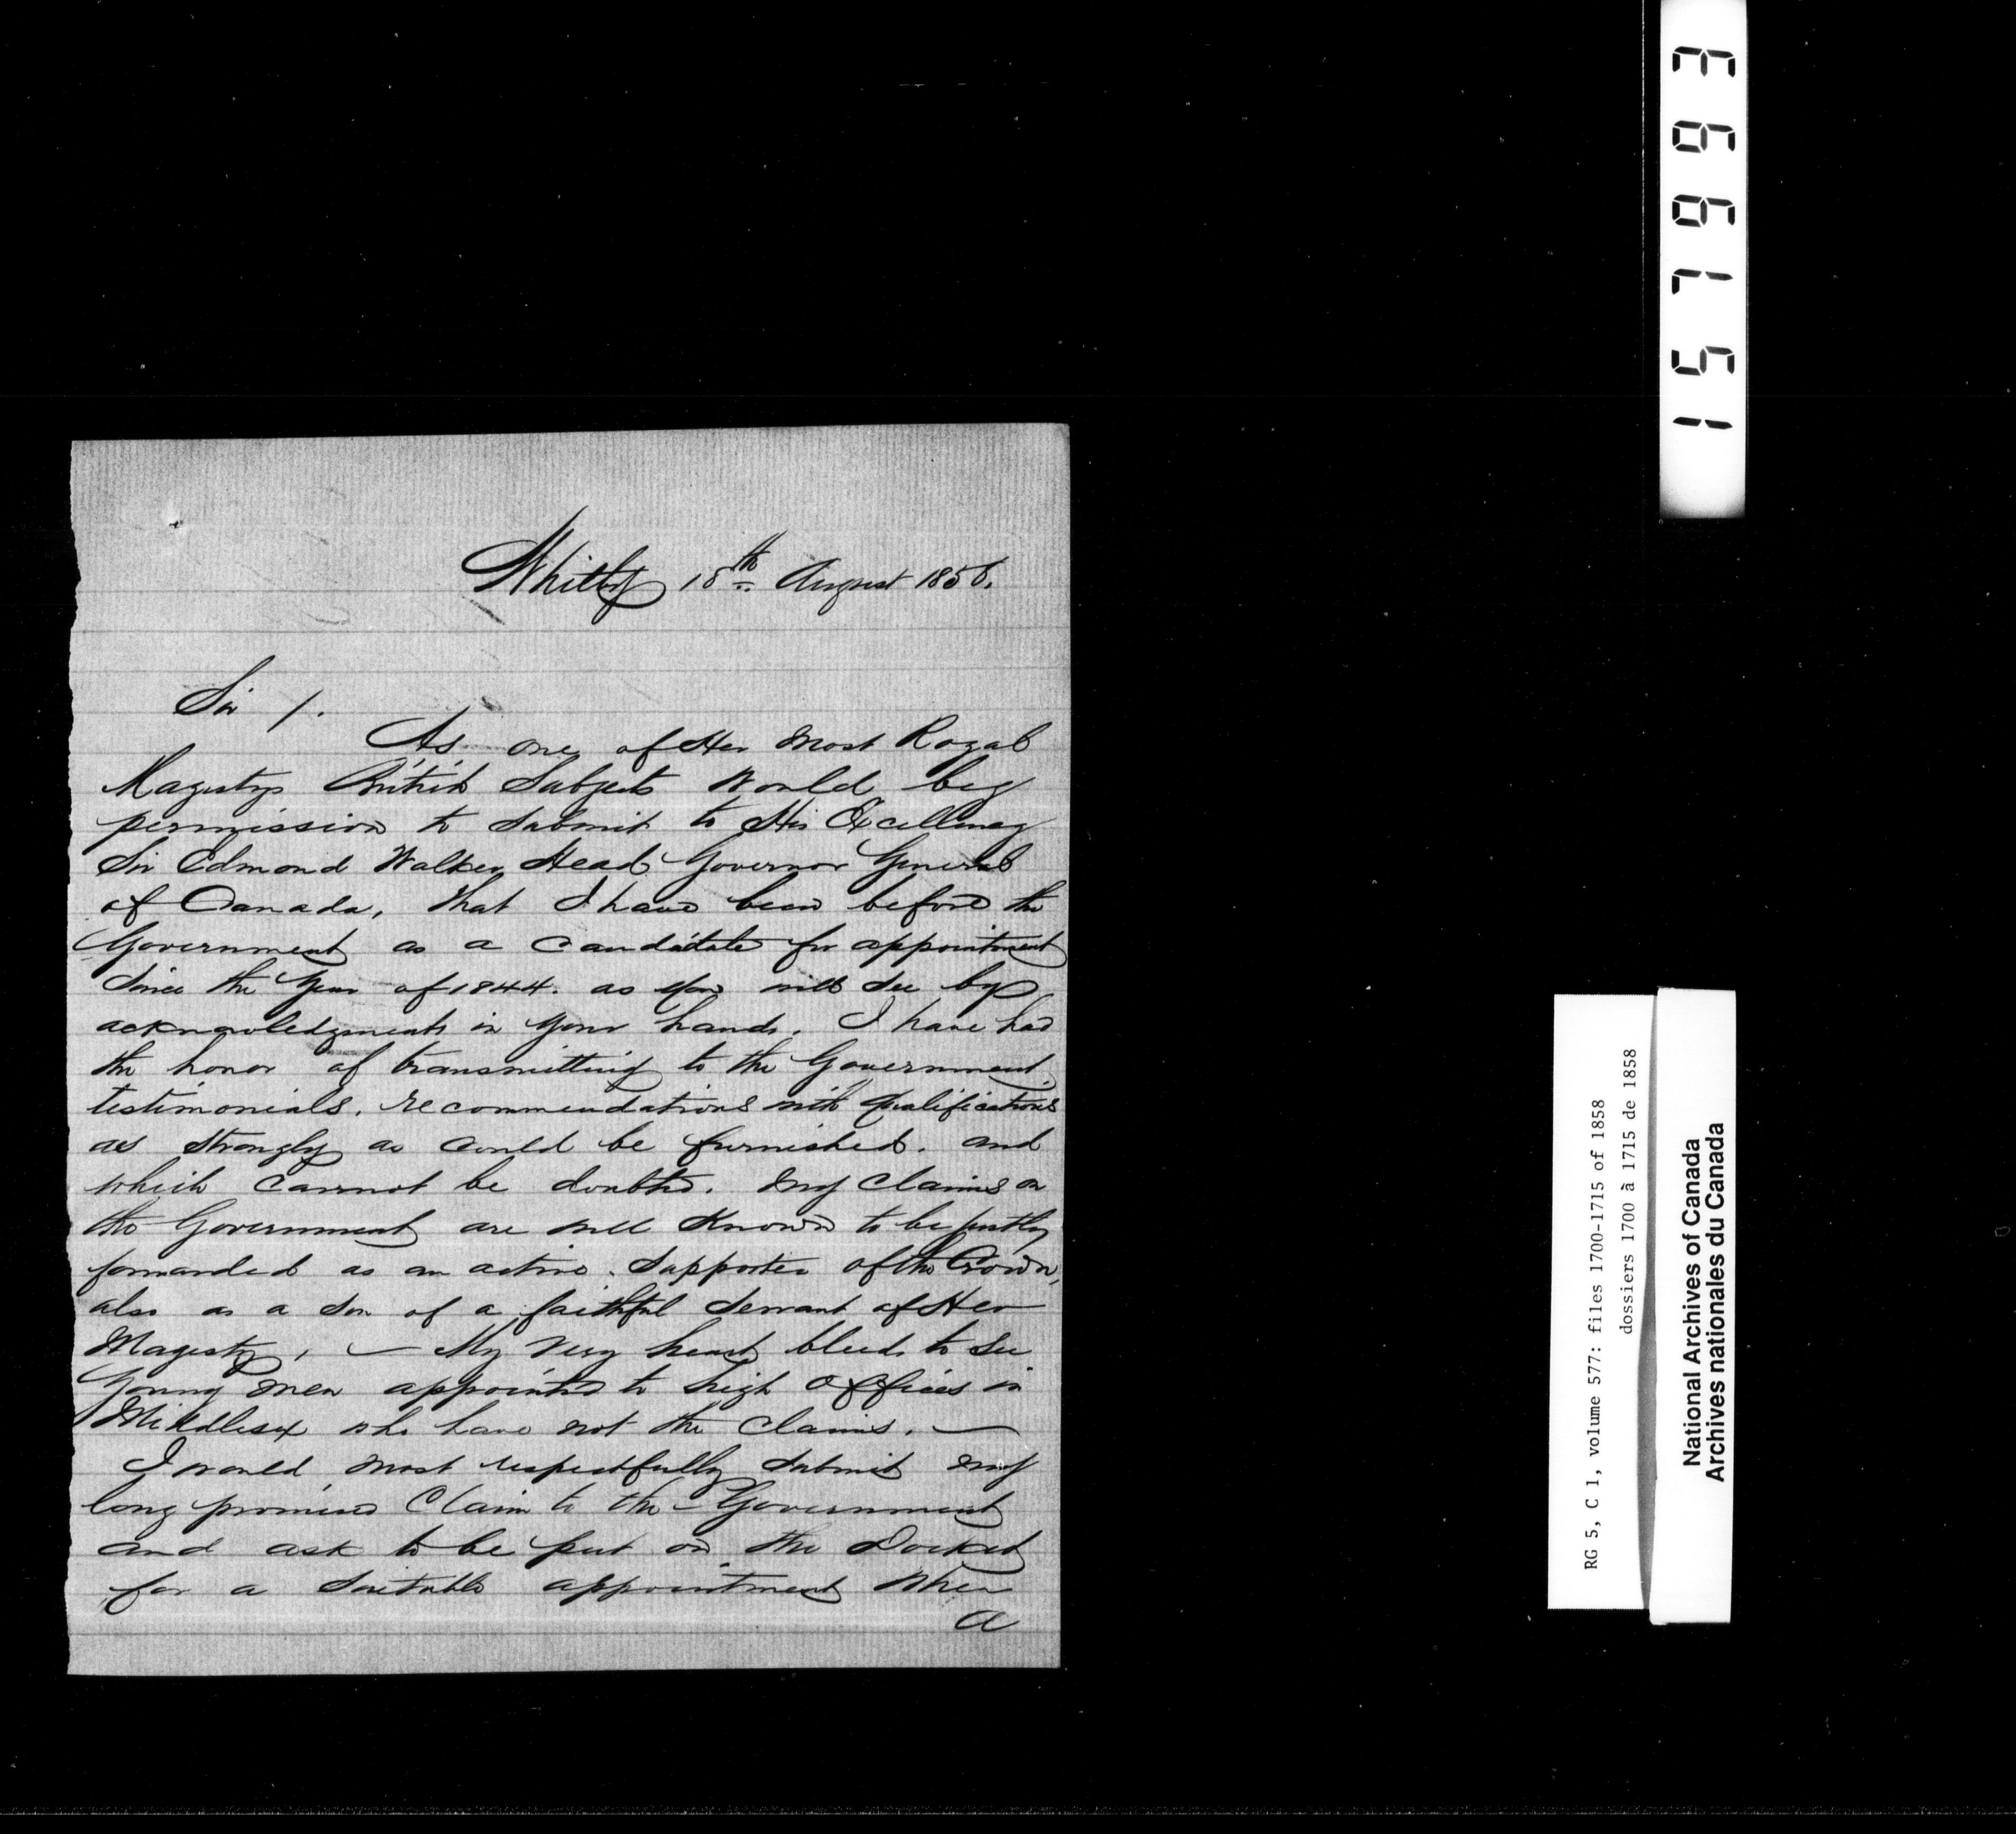 Whitby 18th August 1858.
Sir /.
As one of Her Most Royal
Magestys British Subjects Would beg
permission to submit to His Excellency
Sir Edmond Walker Head Governor General
of Canada, that I have been before the
Government as a candidate for appointment
Since the Year of 1844. as you will see by
acknowledgments in your hands. I have had
the honor of transmitting to the Government
testimonials, recommendations with qualifications
as strongly as could be furnished. and
which cannot be doubted. My claims on
the Government are well Known to be justly
forwarded as an active Supporter of the Crown,
also as a Son of a faithful Servant of Her
Magesty, — My very heart bleeds to see
Young men appointed to high offices in
Middlesex who have not the Claims. —
I would most respectfully submit my
long promised Claim to the Government
and ask to be put on the Docket
for a Suitable appointment When
a
1519993
RG 5, C 1, volume 577: files 1700-1715 of 1858
dossiers 1700 à 1715 de 1858
National Archives of Canada
Archives nationales du Canada